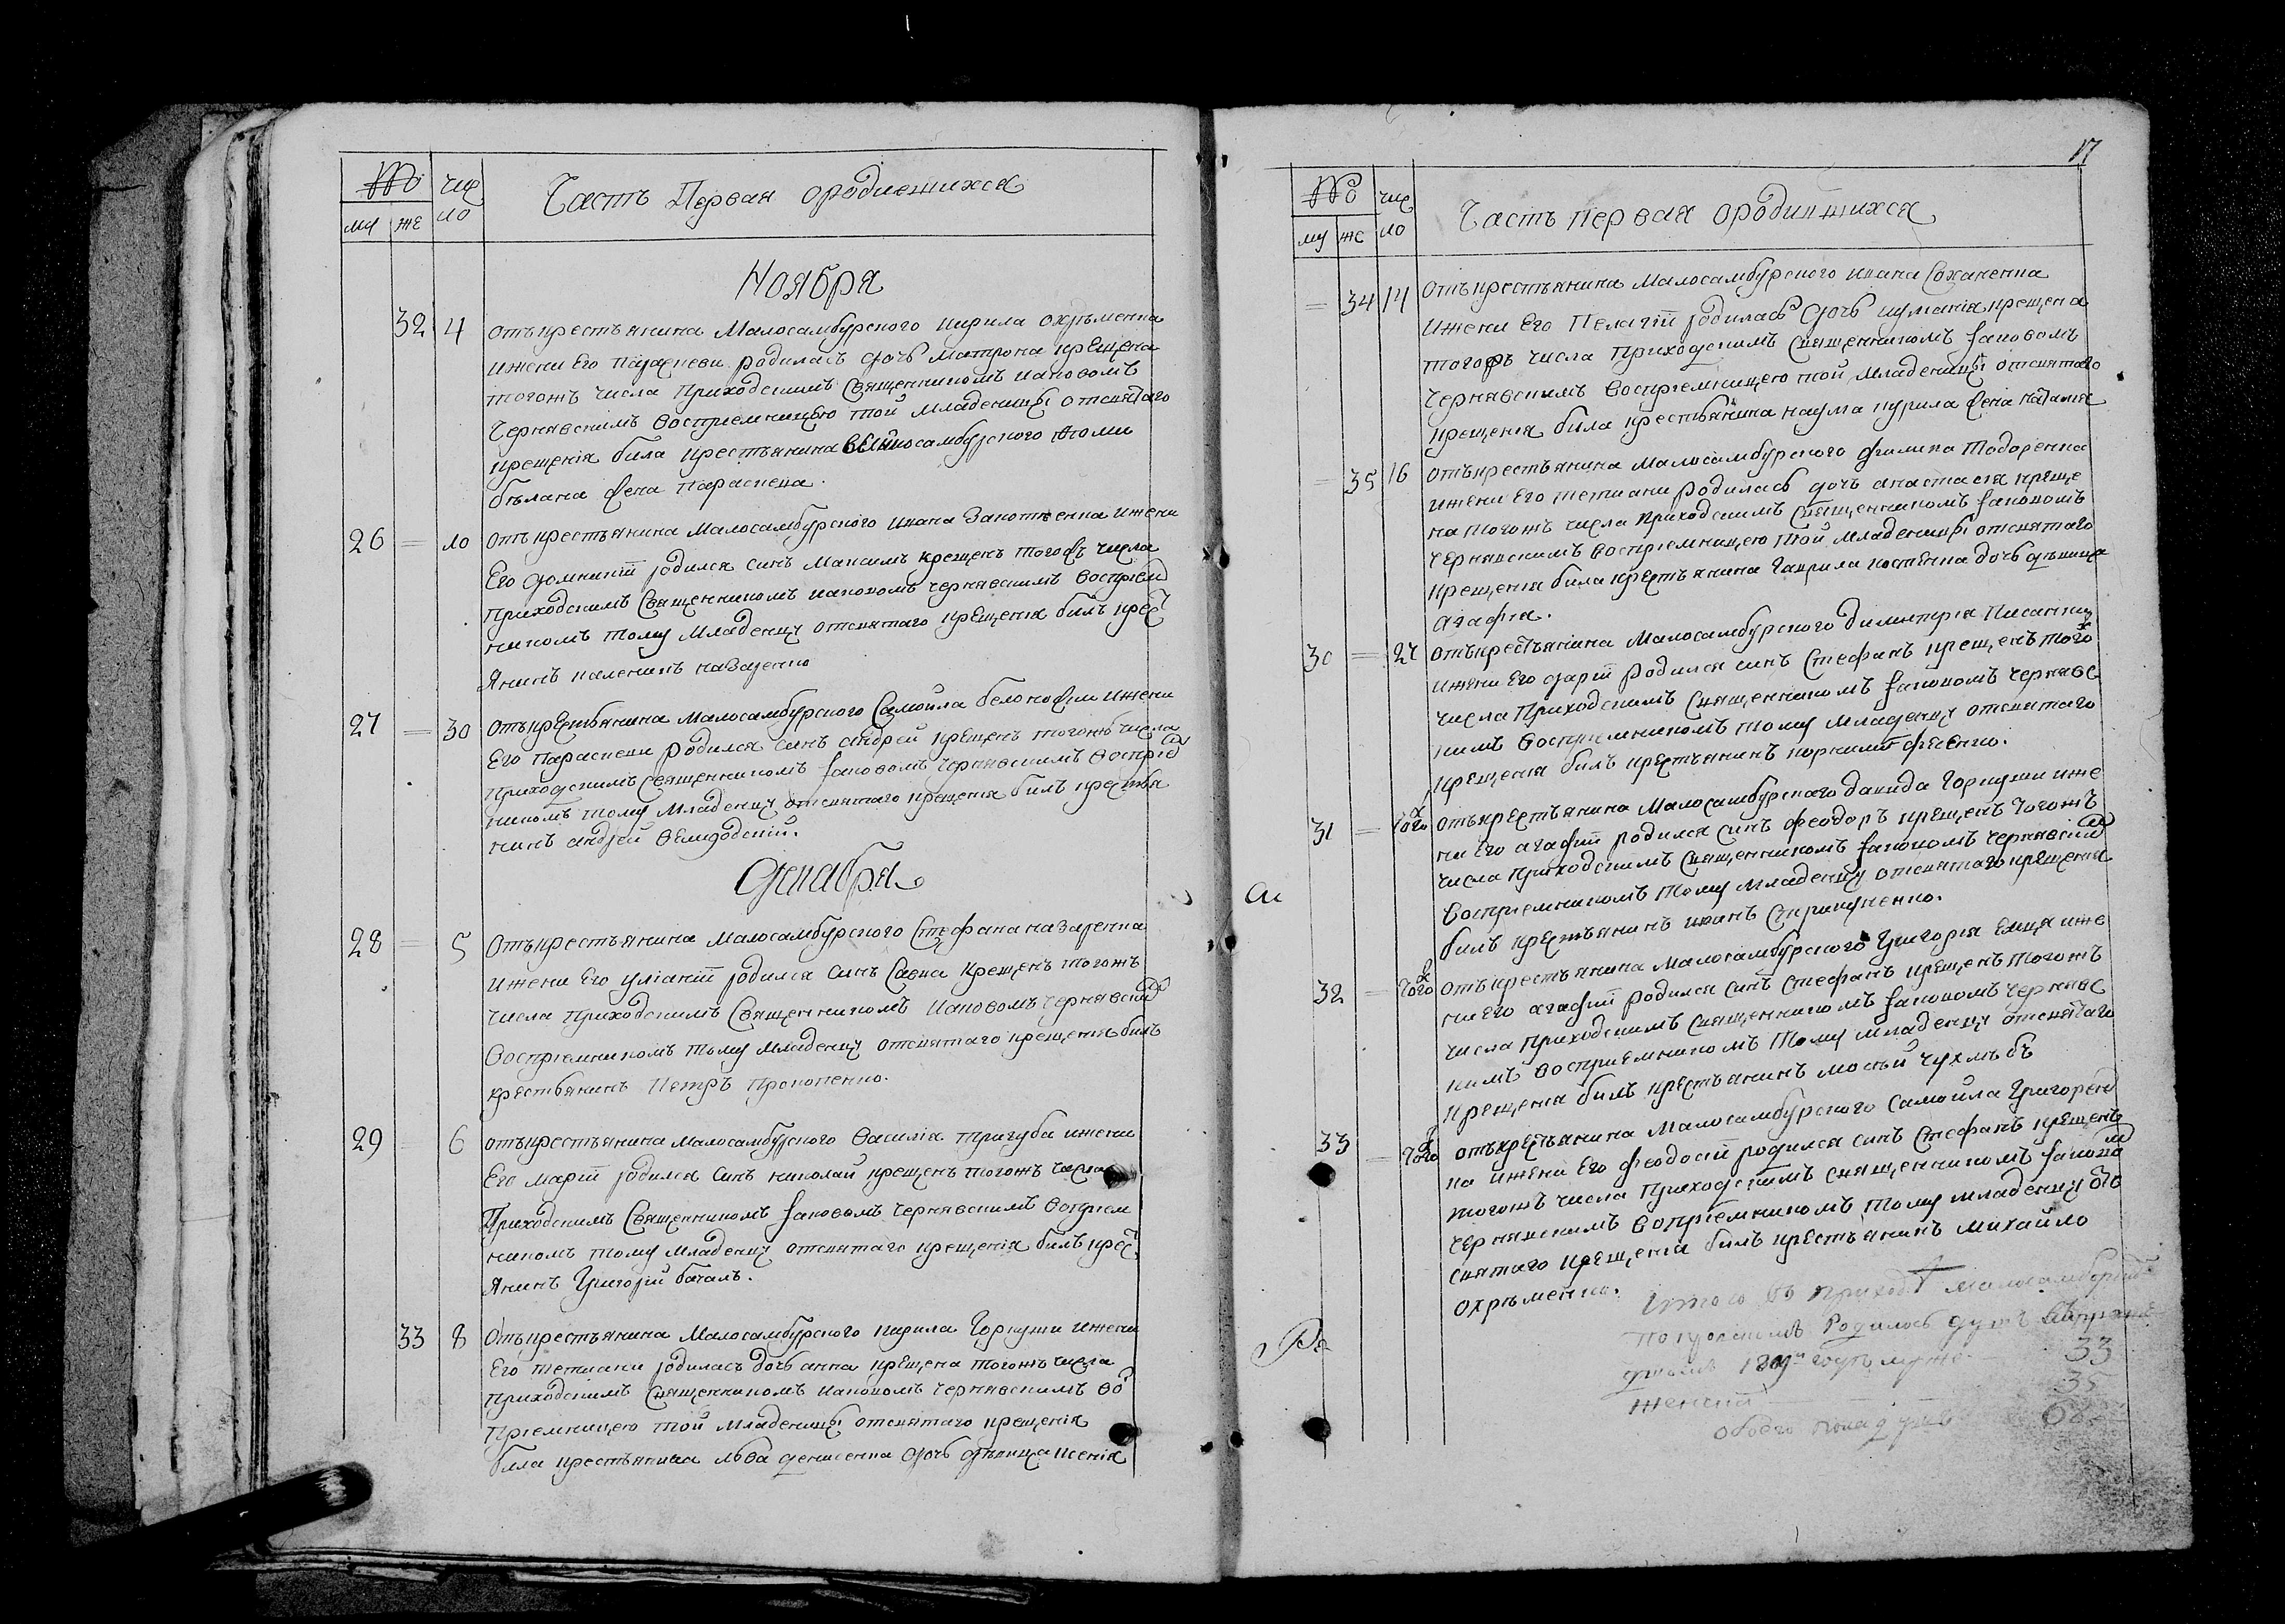 №
чис
ло
му
же
Часть Первая ородившихся
Ноября
32
4
отъ крестьянина Малосамбурского кирила охрѣменка
ижени Его параскеви родилась дочь Матрона крещена
тогожъ числа Приходскимъ Священникомъ Иаковомъ
Чернявскимъ Восприемницею той младеницы отсвятаго
крещенія била крестьянина великосамбурского Фоми
бѣлана жена параскева.
26
10
отъ крестьянина Малосамбурского ивана ижени
Его домникіи родился синъ Максимъ крещенъ тогожъ числа
приходскимъ Священникомъ иаковомъ чернявскимъ восприем
никомъ тому Младенцу отсвятаго крещенія билъ крест
янинъ назаренко
27
30
отъ крестьянина Малосамбурского Самойла белоножки ижени
Его Параскеви родился синъ андрей крещенъ тогожъ числа
приходскимъ Священникомъ Іаковомъ Чернявскимъ Восприем
никомъ тому младенцу отсвятаго крещенія билъ крестья
нинъ андрей
Декабря
28
5
отъ крестьянина Малосамбурского Стефана назаренка
ижени Его уліаніи родился синъ Савва крещенъ тогожъ
числа приходскимъ Священникомъ Иаковомъ чернявским
восприемникомъ тому младенцу отсвятаго крещенія билъ
крестьянинъ Петръ Прокопенко.
29
6
отъ крестьянина малосамбурского Василія пригуба ижени
Его маріи родился синъ николай крещенъ тогожъ числа
Приходскимъ Священникомъ Іаковомъ чернявскимъ восприем
никомъ тому младенцу отсвятаго крещенія билъ крест
янинъ Григорій
33
8
отъ крестьянина Малосамбурского кирила Горкуши ижени
Его тетиани родилась дочь анна крещена тогожъ числа
приходскимъ Священникомъ иаковомъ чернявскимъ вос
приемницею той младеници отсвятаго крещенія
била крестьянина льва денисенка дочь дѣвица ксенія
17
№
чис
ло
му
же
Часть первая ородившихся
34
14
отъ крестьянина Малосамбурского ивана Соханенка
ижени Его Пелагіи родилась дочь иуліанія крещена
тогожъ числа приходскимъ Священникомъ Іаковомъ
Чернявскимъ Восприемницею той младеницы отсвятаго
крещенія била крестьянина наума курила жена наталія
35
16
отъ крестьянина Малосамбурского филипа тодоренка
ижени Его тетиани родилась дочь анастасія креще
на тогожъ числа приходскимъ Священникомъ Іаковомъ
чернявскимъ восприемницею той младеницы отсвятаго
крещенія била крестьянина Гаврила костенка дочь дѣвица
агафія.
30
27
отъ крестьянина Малосамбурского димитрія
ижени Его даріи родился синъ Стефанъ крещенъ того
числа Приходскимъ Священникомъ Іаковомъ чернявс
кимъ восприемникомъ тому младенцу отсвятаго
крещенія билъ крестьянинъ
31
того
отъ крестьянина Малосамбурскаго давида Горкуши иже
ни Его агафіи родился синъ феодоръ крещенъ тогожъ
числа приходскимъ Священникомъ Іаковомъ чернявским
восприемникомъ тому младенцу отсвятаго крещенія
билъ крестьянинъ иванъ
32
того
отъ крестьянина Малосамбурского Григорія иже
ни Его агафіи родился синъ Стефанъ крещенъ тогожъ
числа приходскимъ Священникомъ Іаковомъ чернявс
кимъ восприемникомъ тому младенцу отсвятаго
крещенія билъ крестьянинъ
33
того
отъ крестьянина Малосамбурского самойла Григорен
ка ижени Его феодосіи родился синъ Стефанъ крещенъ
тогожъ числа приходскимъ Священникомъ Іаковом
чернявскимъ восприемникомъ тому младенцу от
святаго крещенія билъ крестьянинъ михайло
охрѣменко.
Итого въ приходѣ малосамбурской
родилось
муже 33
женска 35
обоего пола душъ 68